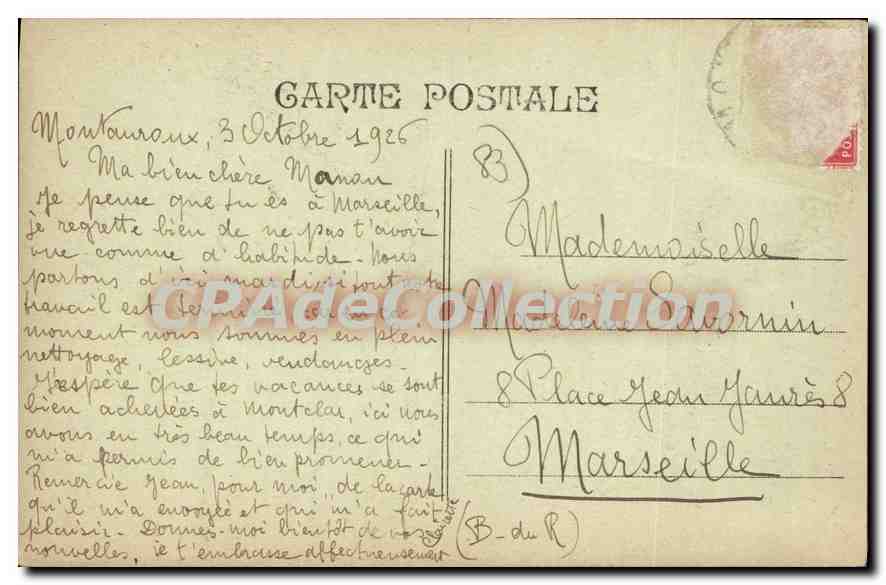 CARTE POSTALE
Montauroux, 3 Octobre 1926
Ma bien chère Manon
Je pense que tu es à Marseille,
je regrette bien de ne pas t'avoir
vue comme d'habitude. Nous
partons d'ici mardi, si tout notre
travail est terminé, en ce
moment nous sommes en plein
nettoyage, lessive, vendanges.
J'espère que tes vacances se sont
bien achevées à Montclar, ici nous
avons eu très beau temps, ce qui
m'a permis de bien promener.
Remercie Jean, pour moi, de la carte
qu'il m'a envoyée et qui m'a fait
plaisir. Donnes-moi bientôt de vos
nouvelles, je t'embrasse affectueusement
83)
Mademoiselle
Madeleine Savornin
8 Place Jean Jaurès 8
Marseille
(B-du R)
PO
CPAdeCollection